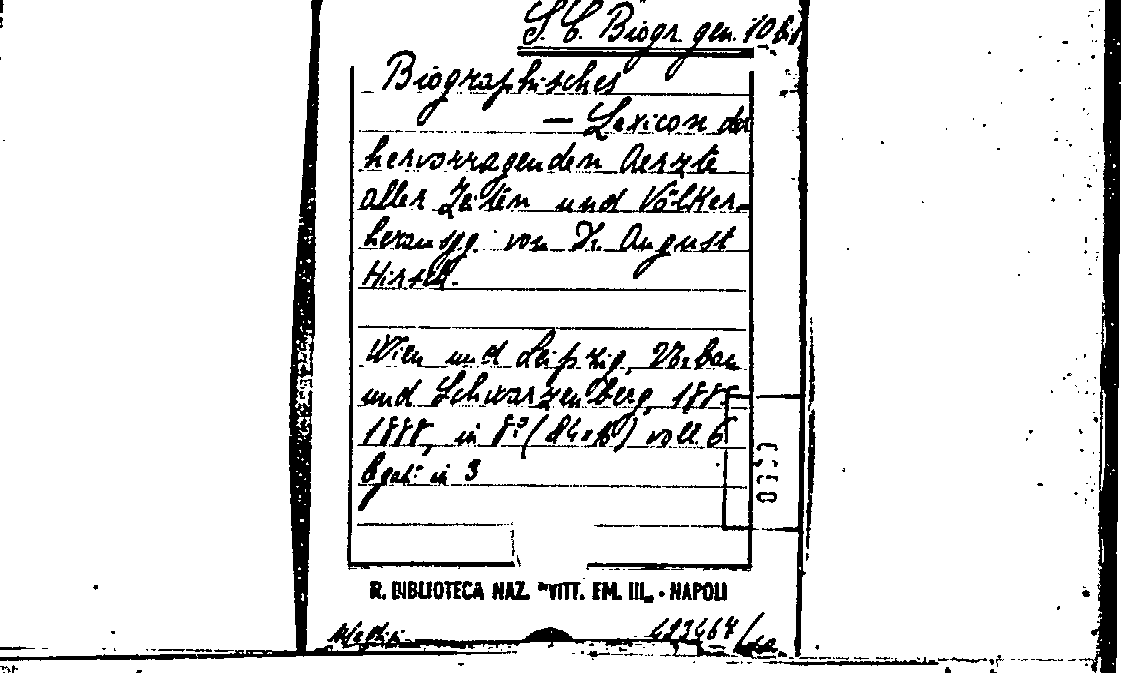 S. C. Biogr. gen. 10
Biographisches
— Lexicon der
hervorragenden Aerzte
aller Zeiten und Völker-
herausgg. von Dr. August
Hirsch.
Wien und Leipzig, Urban
und Schwarzenberg, 1885
1888, in 8º voll 6
in 3
R. BIBLIOTECA NAZ. "VITT. EM. III„ - NAPOLI